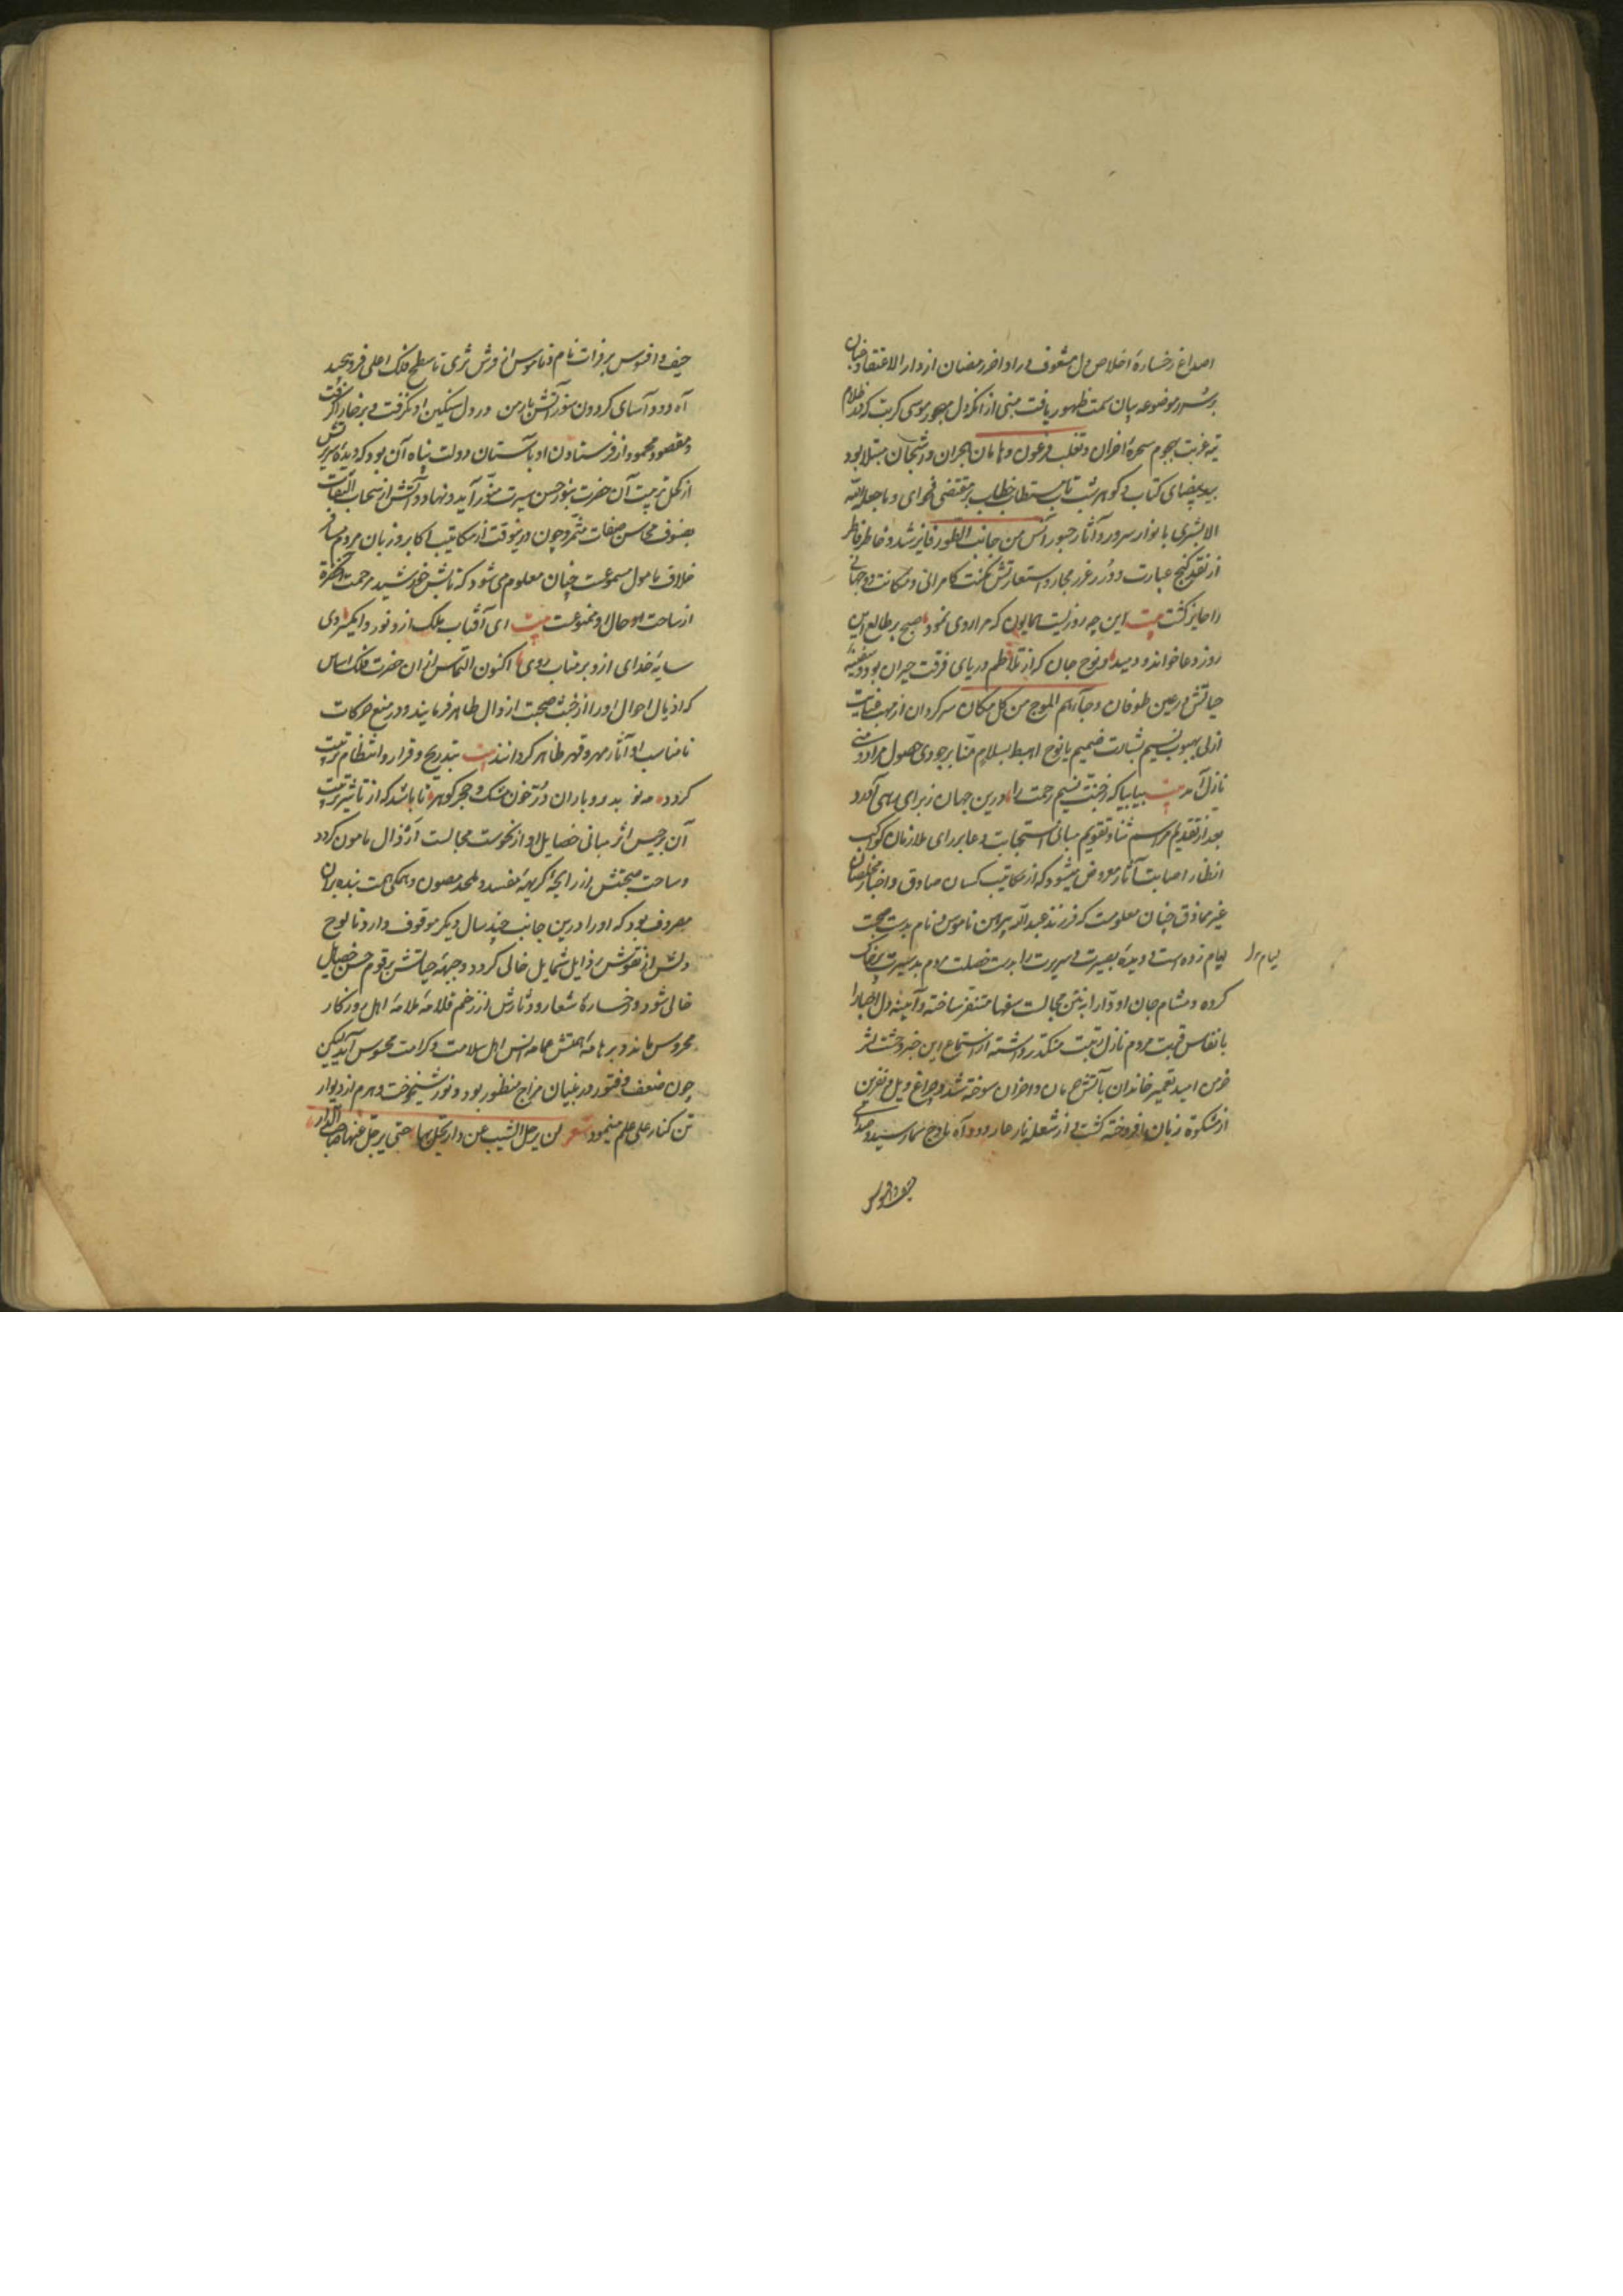 اصداغ رخسارهٔ اخلاص دل مشعوف در اواخر رمضان از دار الاعتقاد جنان
بر سرر موضوعه بیان سمت ظهور یافت مبنی از انکه دل مهجور موسی کربت که در ظلام
تیه غربت بهجوم سحرهٔ احزان و تغلب فرعون و هامان هجران و اشجان مبتلا بود
بید بیضای کتاب کوهر شب تاب مستطاب خطاب بر مقتضی فحوای و ما جعله الله
الا بشری بانوار سرور و آثار حبور آنس من جانب الطور فایز شد و خاطر فاطر
از نقد کنج عبارت و درر غرر مجاز و استعارتش بمکنت کامرانی و مکانت دو جهانی
را حایز کشت بیت این چه روزیست همایون که مرا روی نمود صبح بر طالع این
روز دعا خواند و دمید و نوح جان که از تلاطم دریای فرقت حیران بود و سفینهٔ
حیاتش در عین طوفان و جآءهم الموج من کل مکان سرکردان از مهب عنایت
ازلی بهبوب نسیم بشارت ضمیم یا نوح اهبط بسلام منا بر جودی حصول مراد و منی
نازل آمد بیت بیا بیا که ز جنت نسیم رحمت را درین جهان ز برای رهی آورد
بعد از تقدیم مراسم ثنا و تقویم مبانی استجابت دعا بر رای ملازمان کواکب
انظار اصابت آثار معروض میشود که از مکاتیب کسان صادق و اخبار مخلصان
غیر مماذق چنان معلومست که فرزند عبد الله پیراهن ناموس و نام بدست محبت
لیام زده است و دیدهٔ بصیرت و سریرت را بدست خصلت مردم بد سیرت پر خاک
لیام را
کرده و مشام جان او دّار ابنتن مجالست سفها متنفر ساخته و آیینهٔ دل احبا را
بانفاس قربت مردم نازل رتبت متکدر داشته از استماع این خبر وحشت اثر
خرمن امید تعمیر خاندان بآتش حرمان و احزان سوخته شد و چراغ ویل و نفرین
از مشکوة زبان افروخته کشت و از شعله نار عار دود آه باوج سما رسید و صدای
حیف و افسوس
حیف و افسوس بر ذات نام و ناموس از فرش ثری تا سطح فلک اعلی فرو پیچید
آه دود آسای کردون سوز آتش بار من در دل سنکین او نکرفت در خارا کرفت
و مقصود محمود از فرستادن او بآستان دولت پناه آن بود که دیدهٔ سریرتش
از کحل تربیت آن حضرت بنور حسن سیرت منور آید و نهاد و آتش از سحاب التفات
بصنوف محاسن صفات مثمر و چون درینوقت از مکاتیب اکابر و زبان مردم مسافر
خلاف مامول مسموعست چنان معلوم می شود که تابش خورشید مرحمت آن حضرة
از ساحت او حال او ممنوعست بیت ای آفتاب ملک ازو نور وا مکیر وی
سایهٔ خدای ازو بر متاب روی اکنون التماس از ان حضرت فلک اساس
که اذیال احوال او را از خبث صحبت ارذال طاهر فرمایند و در منع حرکات
نامناسب او آثار مهر و قهر ظاهر کردانند بیت بتدریج و قرار و انتظام تربیت
کردد مه نو بدر و باران در و خون مشک و حجر کوهر تا باشد که از تاثیر تربیت
آن برجیس اثر مبانی خصایل او از نحوست مجالست ارذال مامون کردد
و ساحت صحبتش از رایحهٔ کریههٔ مفسد و ملحد مصون و همکی همت بنده بران
مصروف بود که او را درین جانب چند سال دیکر موقوف دارد تا لوح
دلش از نقوش رذایل شمایل خالی کردد و جبههٔ حیاتش برقوم حسن خصایل
حالی شود و رخسارهٔ شعار و دثارش از زخم قلامهٔ ملامهٔ اهل روزکار
محروس ماند و بر هامهٔ همتش عمامهٔ انس اهل سلامت و کرامت محسوس آید لیکن
چون ضعف و فتور در بنیان مزاج منظور بود و نور شیخوخت و هرم از دیوار
تن کنار علی علم مینمود شعر لن یرحل الشیب عن دار یحل بها حتی یرحل عنها صاحب الدار